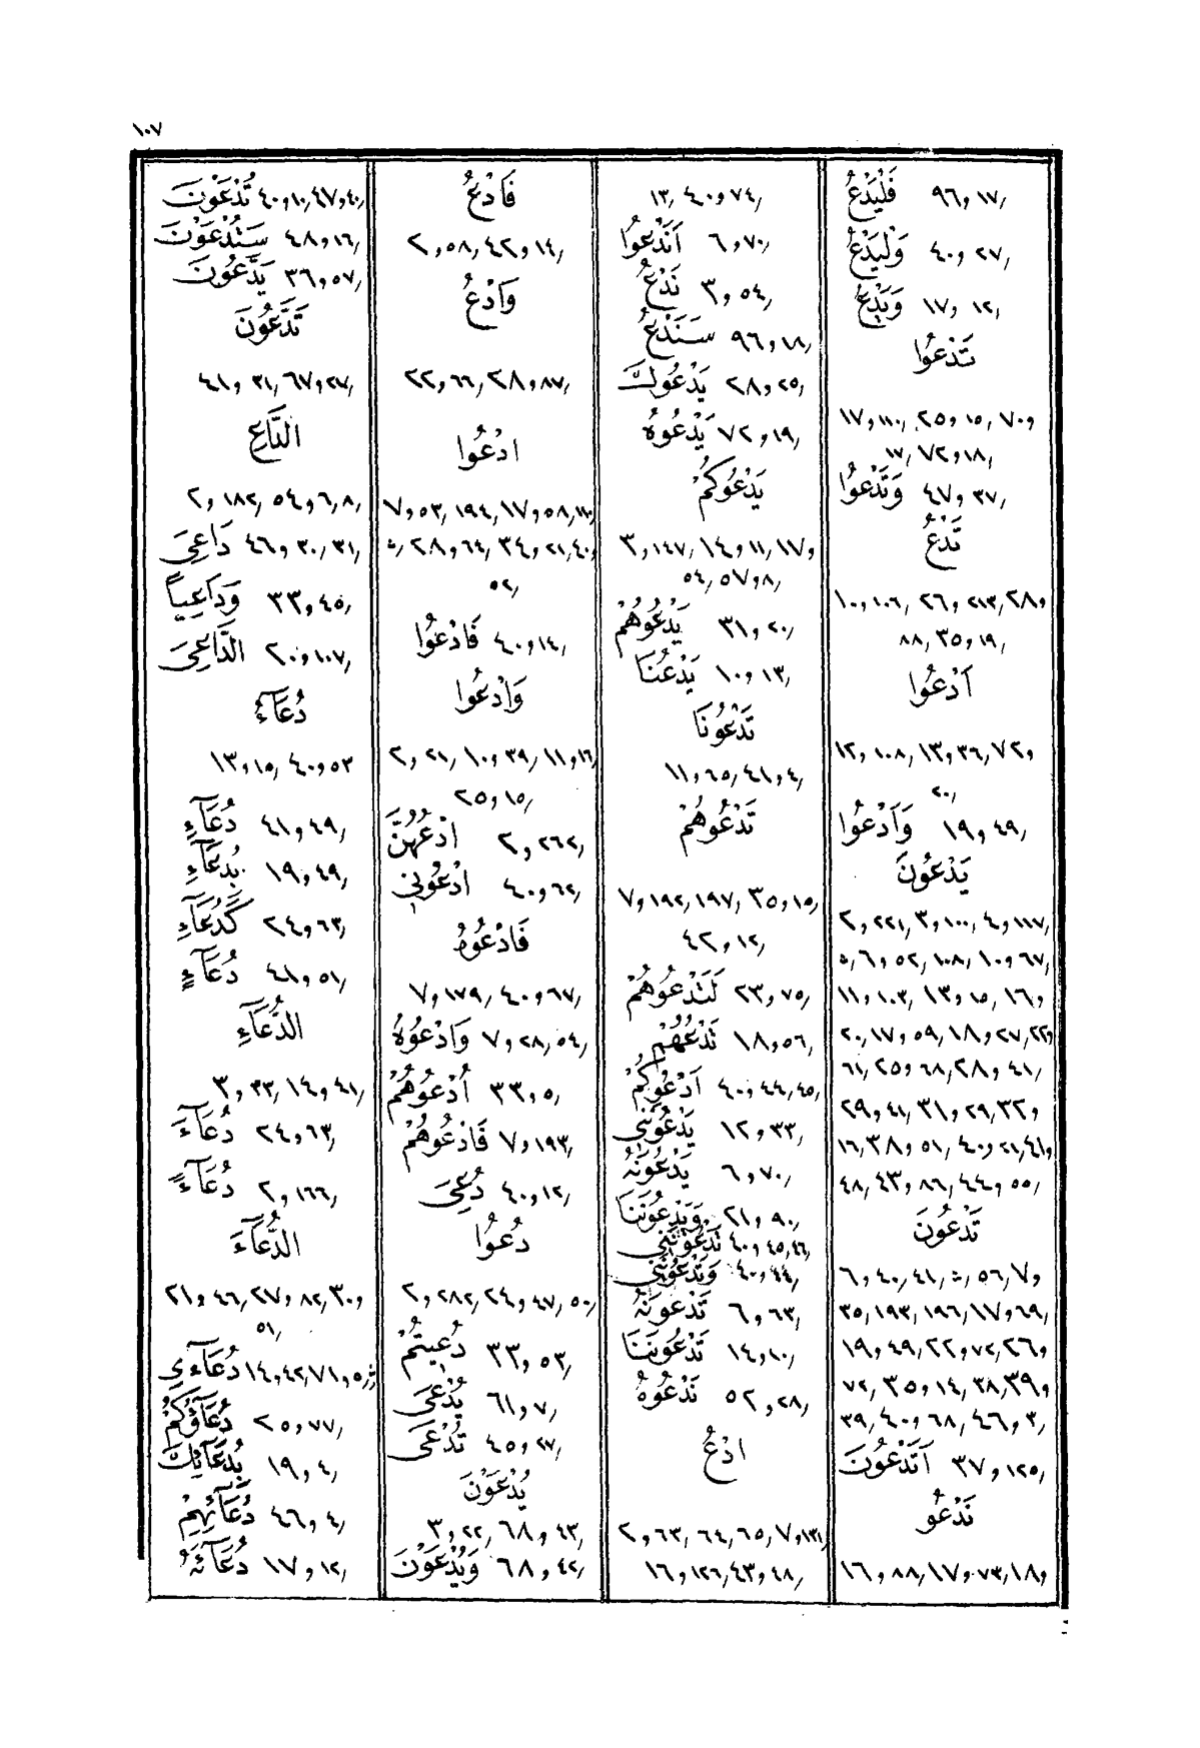 ١٠٧
فَلْيَدْعُ ٩٦,١٧/
وَلْيَدْعُ ٤٠,٢٧/
وَيَدْعُ ١٧,١٢/
تَدْعُوا
١٧,١١٠/ ٢٥,١٥/ ٧٠,
١٧/ ٧٢,١٨/
وَتَدْعُوا ٤٧,٣٧/
تَدْعُ
١٠,١٠٦/ ٢٦,٢١٣/ ٢٨,
٨٨/ ٣٥,١٩/
أَدْعُوا
١٢,١٠٨/ ١٣,٣٦/ ٧٢,
٢٠/
وَأَدْعُوا ١٩,٤٩/
يَدْعُونَ
٢,٢٢١/ ٣,١٠٠/ ٤,١١٧/
٥/ ٦,٥٢/ ١٠٨/ ١٠,٦٧/
١١,١٠٣/ ١٣,١٥/ ١٦,
٢٠/ ١٧,٥٩/ ١٨,٢٧/ ٢٢,
٦١/ ٢٥,٦٨/ ٢٨,٤١/
٢٩,٤١/ ٣١,٢٩/ ٣٢,
١٦/ ٣٨,٥١/ ٤٠,٢١/ ٤١,
٤٨/ ٤٣,٨٦/ ٤٤,٥٥/
تَدْعُونَ
٦,٤٠/ ٤١/ ٥٦/ ٧,
٣٥/ ١٩٣/ ١٩٦/ ١٧,٦٩/
١٩,٤٩/ ٢٢,٧٢/ ٢٦,
٧٢/ ٣٥,١٤/ ٣٨/ ٣٩,
٣٩/ ٤٠,٦٨/ ٤٦,٣/
أَتَدْعُونَ ٣٧,١٢٥/
نَدْعُو
١٦,٨٨/ ١٧,٧٣/ ١٨,
١٣/ ٤٠,٧٤/
أَنَدْعُوا ٦,٧٠/
نَدْعُ ٣,٥٤/
سَنَدْعُ ٩٦,١٨/
يَدْعُوكَ ٢٨,٢٥/
يَدْعُوهُ ٧٢,١٩/
يَدْعُوكُمْ
٣,١٤٧/ ١٤,١١/ ١٧,
٥٤/ ٥٧,٨/
يَدْعُوهُمْ ٣١,٢٠/
يَدْعُنَا ١٠,١٣/
تَدْعُونَا
١١,٦٥/ ٤١,٤/
تَدْعُوهُمْ
٧,١٩٢/ ١٩٧/ ٣٥,١٥/
٤٢,١٢/
لَتَدْعُوهُمْ ٢٣,٧٥/
تَدْعُهُمْ ١٨,٥٦/
أَدْعُوكُمْ ٤٠,٤٤/ ٤٥/
يَدْعُونَنِي ١٢,٣٣/
يَدْعُونَهُ ٦,٧٠/
وَيَدْعُونَنَا ٢١,٩٠/
تَدْعُونَنِي ٤٠,٤٥/ ٤٦/
وَتَدْعُونَنِي ٤٠,٤٤/
تَدْعُونَهُ ٦,٦٣/
تَدْعُونَنَا ١٤,١٠/
نَدْعُوهُ ٥٢,٢٨/
ادْعُ
٢,٦٣/ ٦٤/ ٦٥/ ٧,١٣١/
١٦,١٢٦/ ٤٣,٤٨/
فَادْعُ
٢,٥٨/ ٤٢,١٤/
وَادْعُ
٢٢,٦٦/ ٢٨,٨٧/
ادْعُوا
٧,٥٣/ ١٩٤/ ١٧,٥٨/ ١١٠/
٥/ ٢٨,٦٤/ ٣٤,٢١/ ٤٠,
٥٢/
فَادْعُوا ٤٠,١٤/
وَادْعُوا
٢,٢١/ ١٠,٣٩/ ١١,١٦/
٢٥,١٥/
ادْعُهُنَّ ٢,٢٦٢/
ادْعُونِي ٤٠,٦٢/
فَادْعُوهُ
٧,١٧٩/ ٤٠,٦٧/
وَادْعُوهُ ٧,٢٨/ ٥٤/
ادْعُوهُمْ ٣٣,٥/
فَادْعُوهُمْ ٧,١٩٣/
دُعِيَ ٤٠,١٢/
دُعُوا
٢,٢٨٢/ ٢٤,٤٧/ ٥٠/
دُعِيتُمْ ٣٣,٥٣/
يُدْعَى ٦١,٧/
تُدْعَى ٤٥,٢٧/
يُدْعَوْنَ
٣,٢٢/ ٦٨,٤٣/
وَيُدْعَوْنَ ٦٨,٤٢/
تُدْعَوْنَ ٤٠,١٠/ ٤٧,٤٠/
سَتُدْعَوْنَ ٤٨,١٦/
يَدَّعُونَ ٣٦,٥٧/
تَدَّعُونَ
٤١,٣١/ ٦٧,٢٧/
الدَّاعِ
٢,١٨٢/ ٥٤,٦/ ٨/
دَاعِيَ ٤٦,٣٠/ ٣١/
وَدَاعِيًا ٣٣,٤٥/
الدَّاعِيَ ٢٠,١٠٧/
دُعَآءُ
١٣,١٥/ ٤٠,٥٣
دُعَآءِ ٤١,٤٩/
بِدُعَآءِ ١٩,٤٩/
كَدُعَآءِ ٢٤,٦٣/
دُعَآءٍ ٤١,٥١/
الدُّعَآءِ
٣,٣٣/ ١٤,٤١/
دُعَآءَ ٢٤,٦٣/
دُعَآءً ٢,١٦٦/
الدُّعَآءَ
٢١,٤٦/ ٢٧,٨٢/ ٣٠,
٥١/
دُعَآءِي ١٤,٤٢/ ٧١,٥/
دُعَآؤُكُمْ ٢٥,٧٧/
بِدُعَآئِكَ ١٩,٤/
دُعَآئِهِمْ ٤٦,٤/
دُعَآءَهُ ١٧,١٢/